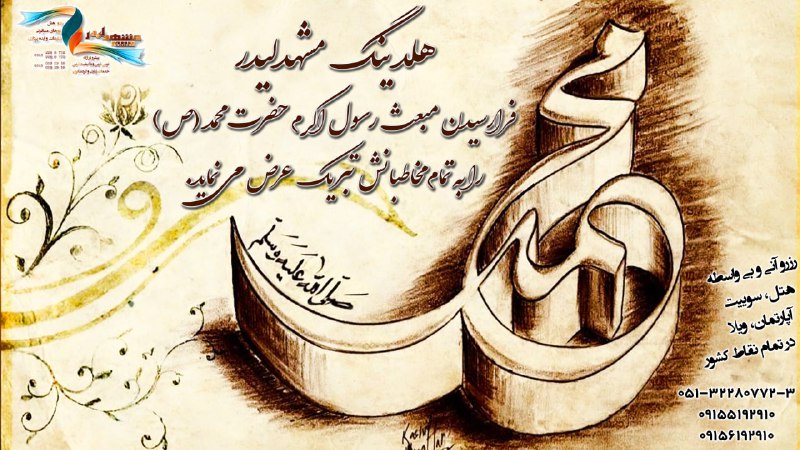 هلدینگ مشهد لیدر
فرارسیدن مبعث رسول اکرم حضرت محمد (ص)
را به تمام مخاطبانش تبریک عرض می نماید.
محمد
صلی الله علیه وسلم
رزرو آنی و بی واسطه
هتل، سوییت
آپارتمان، ویلا
در تمام نقاط کشور
۰۵۱-۳۲۲۸۰۷۷۲-۳
۰۹۱۵۵۱۹۲۹۱۰
۰۹۱۵۶۱۹۲۹۱۰